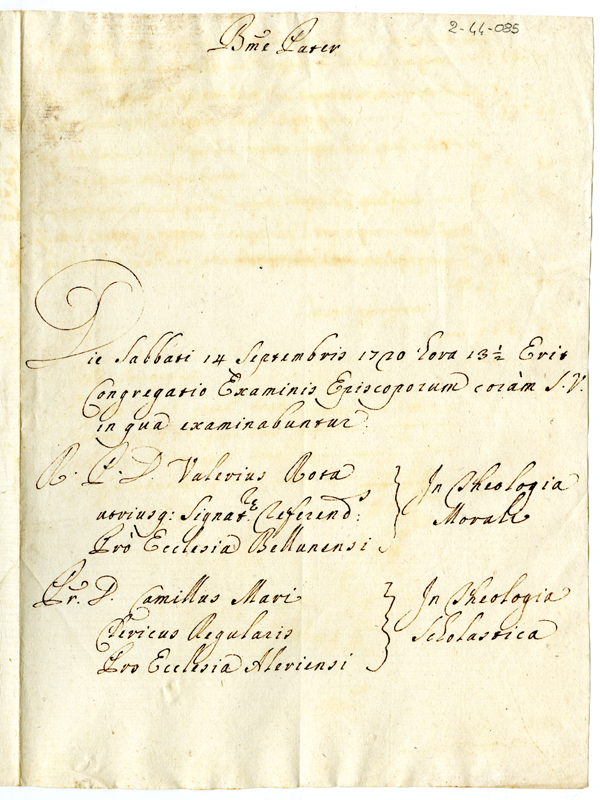 2-44-085
Bme Pater
Die Sabbati 14 Septembris 1720 hora 13½ Erit
Congregatio Examinis Episcoporum coràm S. V.
in qua examinabuntur
R. P. D. Valerius Rota
utriusq: Signat.re Referend.s:
Prò Ecclesia Bellunensi
In Theologia
Morali
Pr. D. Camillus Mari
Clericus Regularis
Pro Ecclesia Aleriensi
In Theologia
Scholastica